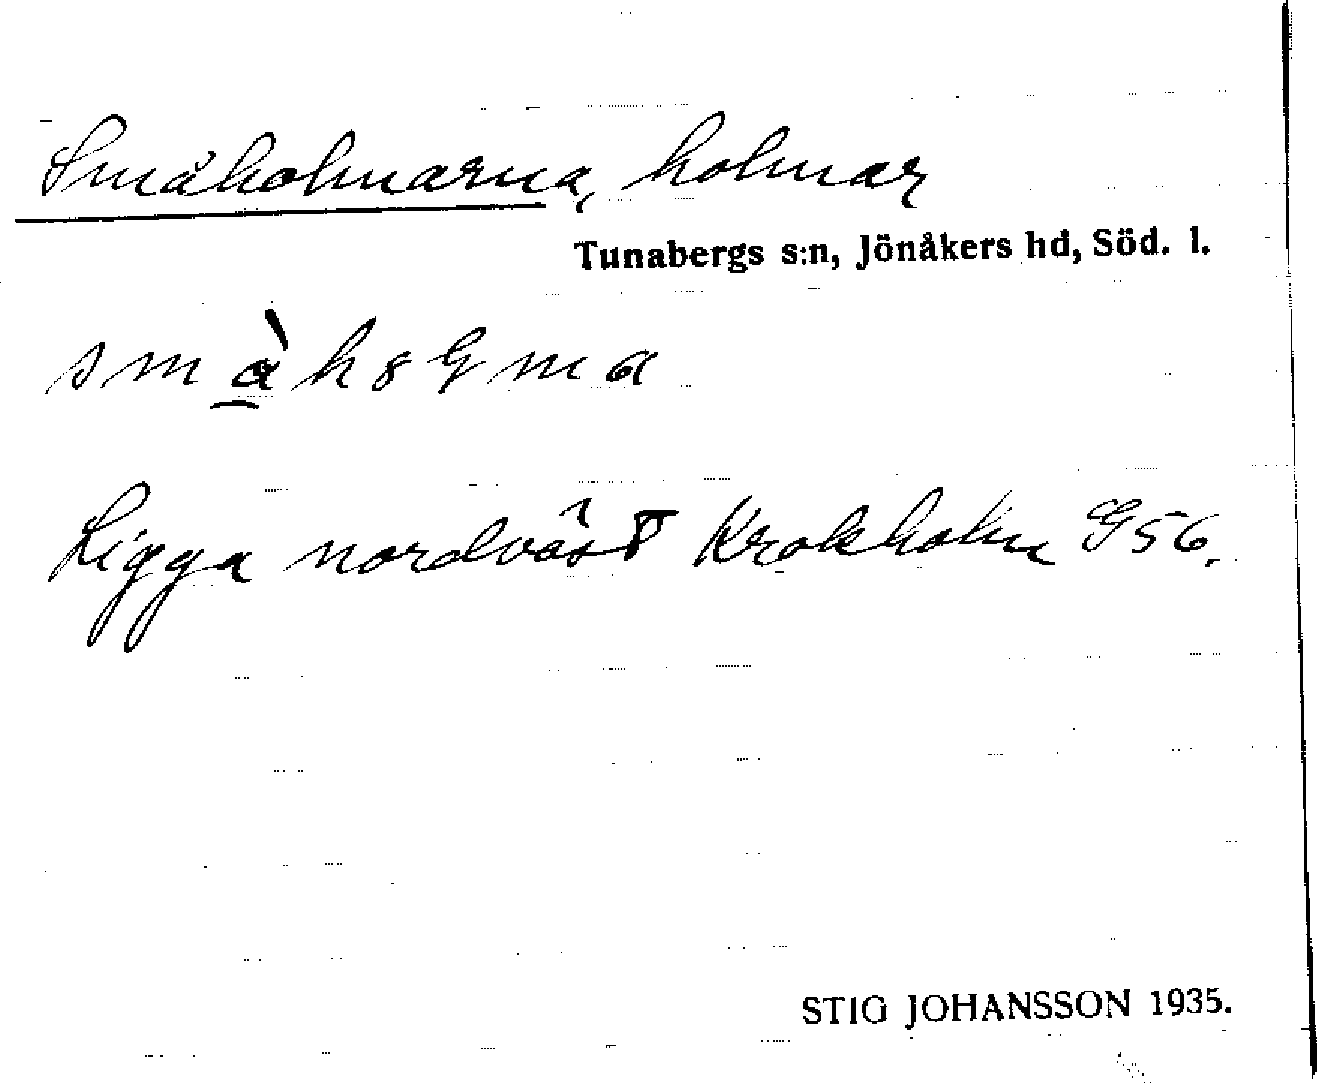 Småholmarna, holmar
Tunabergs s:n, Jönåkers hd, Söd. l.
Ligga nordväst Krokholm G56.
STIG JOHANSSON 1935.